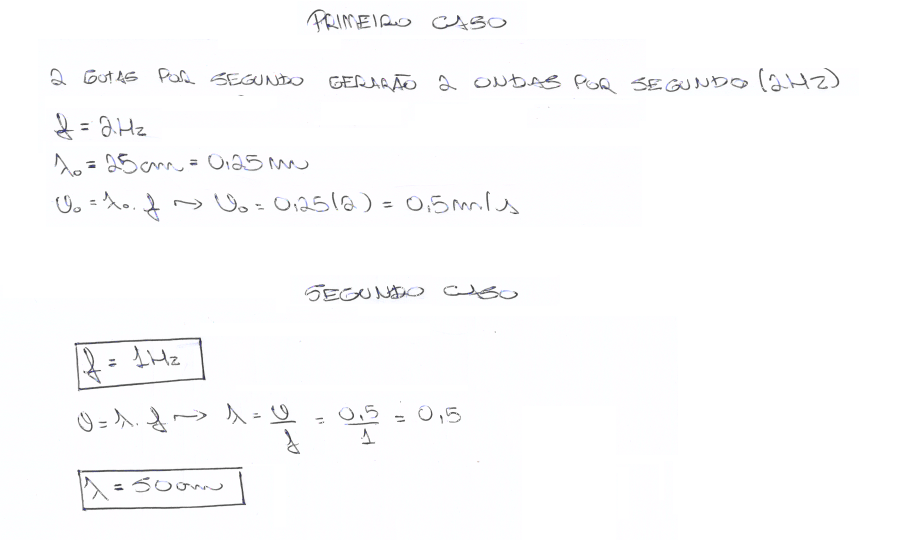 PRIMEIRO CASO
2 GOTAS POR SEGUNDO GERARÃO 2 ONDAS POR SEGUNDO (2Hz)
f = 2Hz
λ₀ = 25cm = 0,25m
v₀ = λ₀.f → v₀ = 0,25(2) = 0,5m/s
SEGUNDO CASO
f = 1Hz
v = λ.f → λ = v/f = 0,5/1 = 0,5
λ = 50cm